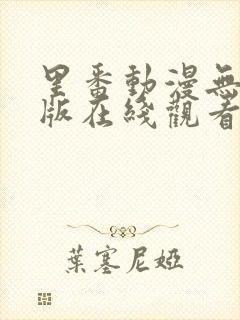 里番動漫無
版在綫觀看
葉塞尼婭